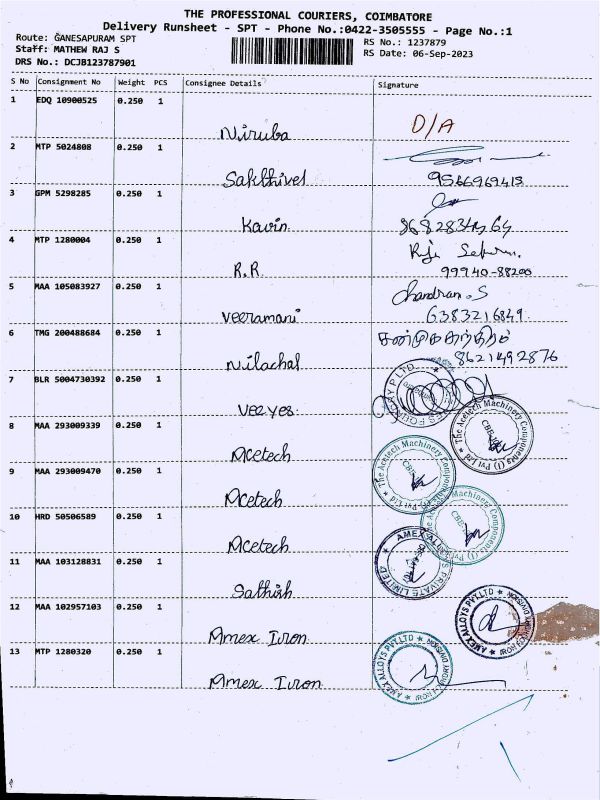 THE PROFESSIONAL COURIERS, COIMBATORE
Delivery Runsheet - SPT - Phone No.:0422-3505555 - Page No.:1
Route: GANESAPURAM SPT
RS No.: 1237879
Staff: MATHEW RAJ S
RS Date: 06-Sep-2023
DRS No.: DCJB123787901
S No Consignment No Weight PCS Consignee Details Signature
1 EDQ 10900525 0.250 1
Niruba D/A
2 MTP 5024808 0.250 1
Sakthivel 9566969413
3 GPM 5298285 0.250 1
Kavin
4 MTP 1280004 0.250 1
R.R. 99940-88200
5 MAA 105083927 0.250 1 Chandran.S
Veeramani 6383216849
6 TMG 200488684 0.250 1
Nilachal 8621492876
7 BLR 5004730392 0.250 1
Veeyes
8 MAA 293009339 0.250 1 The Acetech Machinery Components (I) Pvt Ltd
Acetech
9 MAA 293009470 0.250 1 The Acetech Machinery Components (I) Pvt Ltd
Acetech
10 HRD 50506589 0.250 1 Machinery Components (I) Pvt Ltd
Acetech
11 MAA 103128831 0.250 1
Sathish
12 MAA 102957103 0.250 1 AMEX ALLOYS PVT LTD
Amex Iron
13 MTP 1280320 0.250 1 AMEX ALLOYS PVT LTD
Amex Iron